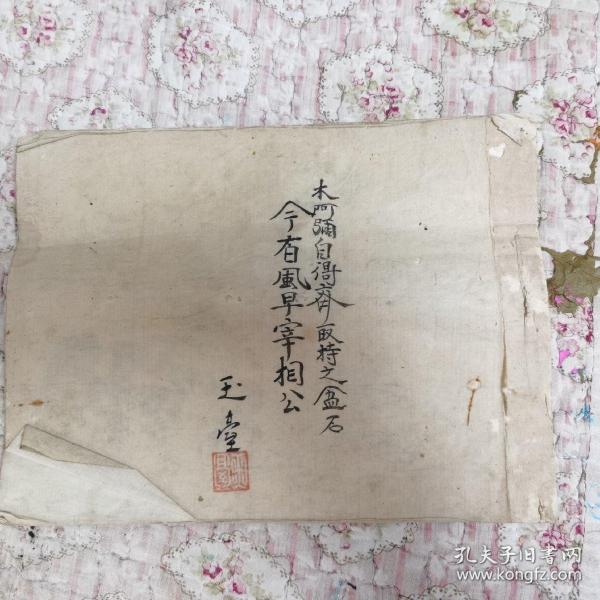 木阿彌自得齊取持之盆石
今有風早宰相公
玉臺
孔夫子旧书网
www.kongfz.com